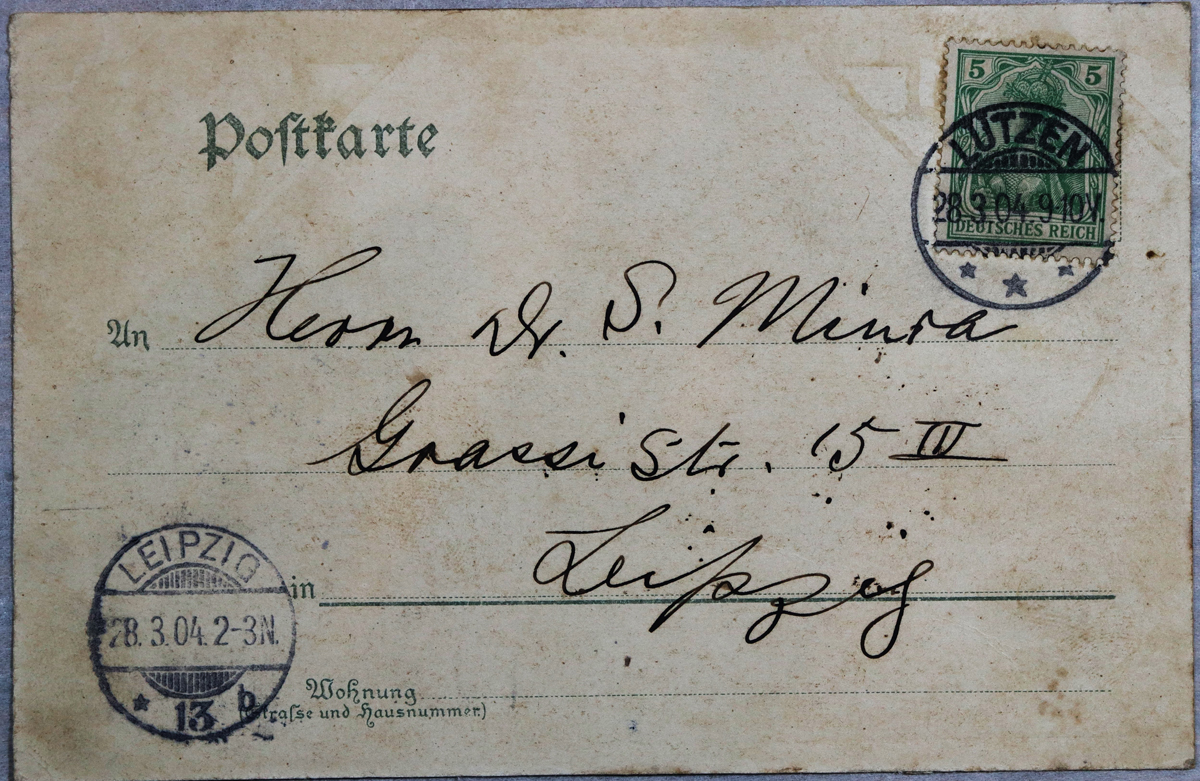 5 5
LÜTZEN
28.3.04.9-10V.
DEUTSCHES REICH
Postkarte
An Herrn Dr. S. Miura
Grassi Str. 15 III
in Leipzig
LEIPZIG
28.3.04.2-3N.
13 b
Wohnung
(Strasse und Hausnummer)